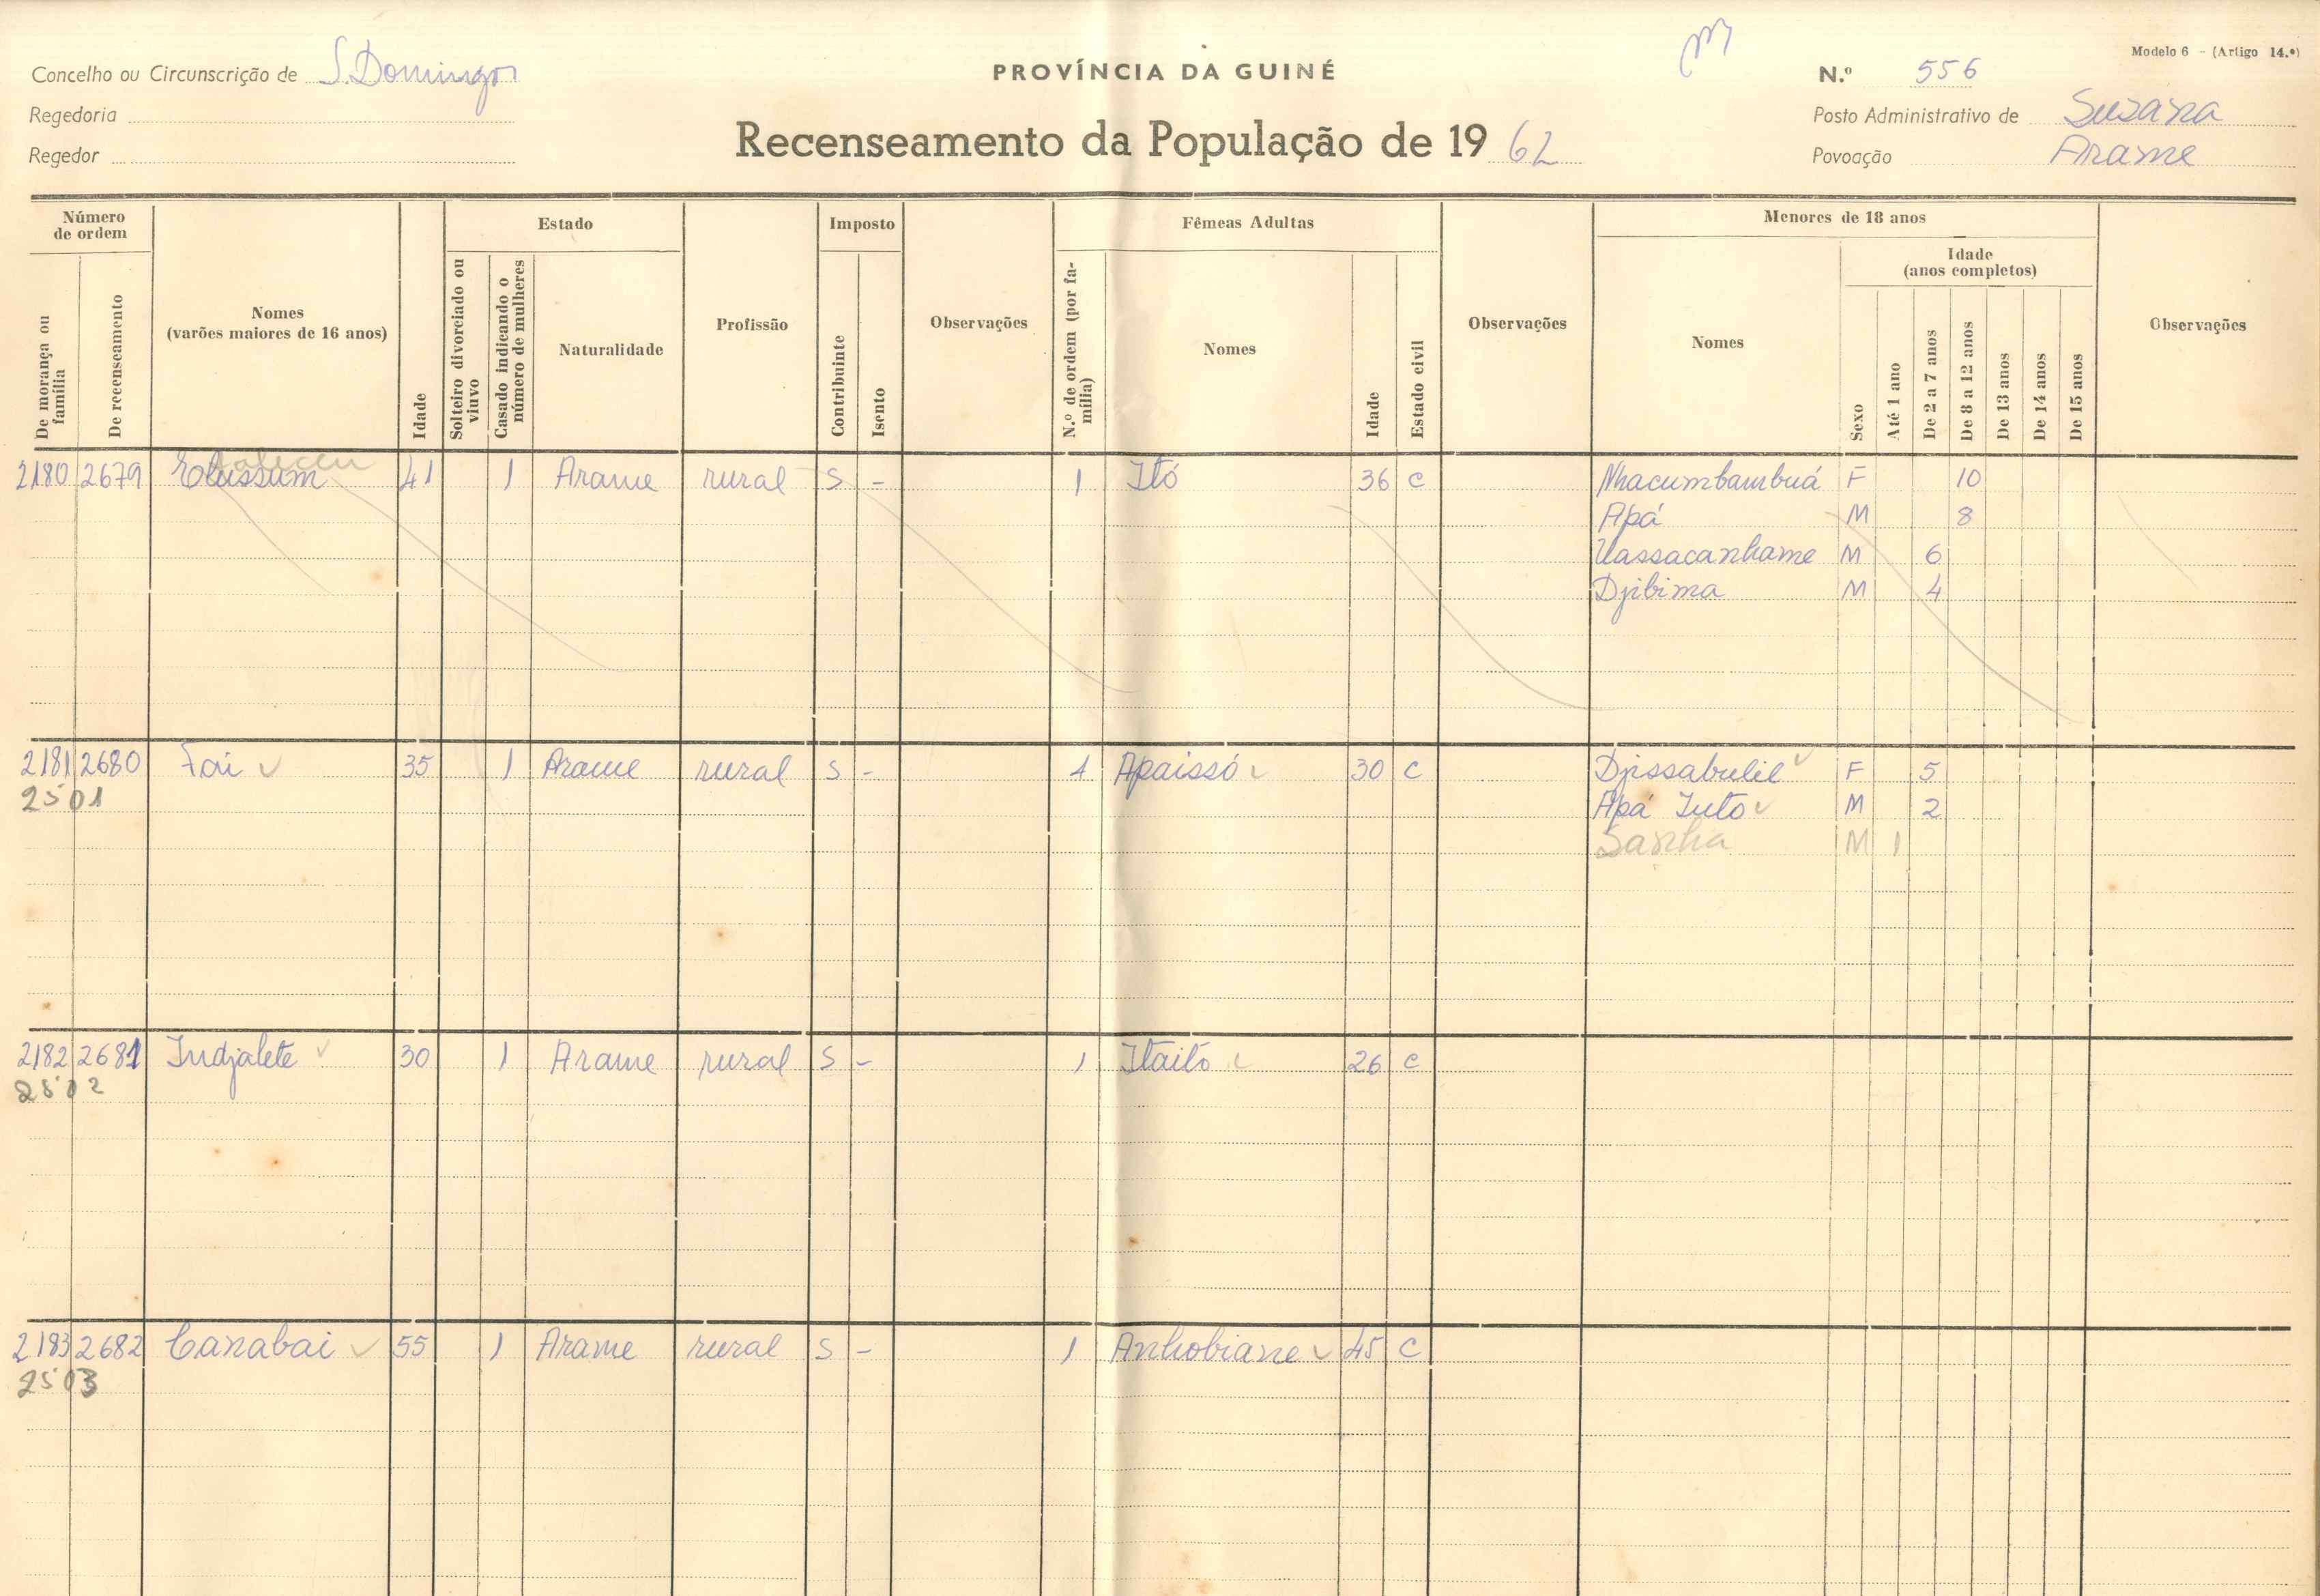 Modelo 6 - (Artigo 14.º)
Concelho ou Circunscrição de S. Domingos
PROVÍNCIA DA GUINÉ
N.º 556
Regedoria
Posto Administrativo de Suzana
Regedor
Recenseamento da População de 19 62
Povoação Arame
Número de ordem
De morança ou família
De recenseamento
Nomes
(varões maiores de 16 anos)
Idade
Estado
Solteiro divorciado ou viuvo
Casado indicando o número de mulheres
Naturalidade
Profissão
Imposto
Contribuinte
Isento
Observações
Fêmeas Adultas
N.º de ordem (por família)
Nomes
Idade
Estado civil
Observações
Menores de 18 anos
Nomes
Sexo
Idade
(anos completos)
Até 1 ano
De 2 a 7 anos
De 8 a 12 anos
De 13 anos
De 14 anos
De 15 anos
Observações
faleceu
2180 2679 Elussum 41 1 Arame rural S - 1 Itó 36 C Nhacumbambuá F 10
Apá M 8
Uassacanhame M 6
Djibima M 4
2181 2680 Fai 35 1 Arame rural S - 1 Apaissó 30 C Djissabulil F 5
2501 Apá Juto M 2
Sanha M 1
2182 2681 Indjalete 30 1 Arame rural S - 1 Itaito 26 C
2502
2183 2682 Canabai 55 1 Arame rural S - 1 Anhobiane 45 C
2503